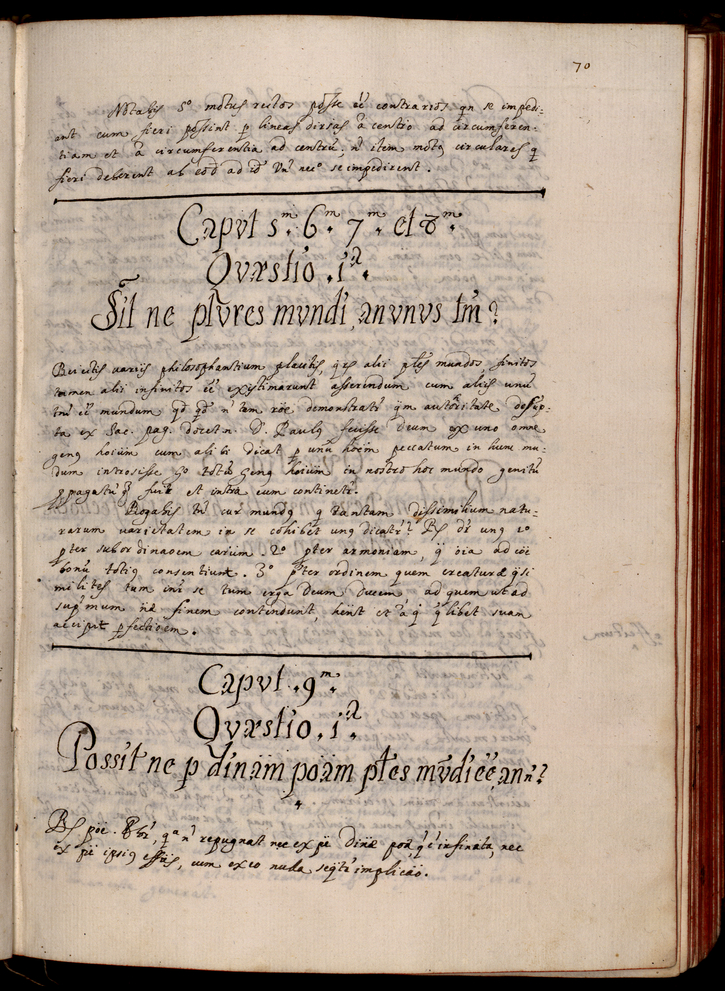 70
Notabis 5º motus rectos posse eē contrarios qn se impedi-
ant cum fieri possint p lineas divsas a centro ad circumferen-
tiam et a circumferentia ad centrū; n̄ item motq circulares q
fieri deberent ab eod ad id vn neº se impedirent.
Capvt 5m. 6m. 7m. et 8m.
Qvæstio .1ª.
Sit ne plvres mvndi, an vnvs tm̄?
variis philosophantium placitis, alii plēs mundos, finitos
tamen alii infinitos eē existimarunt asserendum cum aliis unū
tm̄ eē mundum qd n̄ tam rōe demonstratr qm autoritate
ta ex Sac. pag. docet n. D. Paulq fecisse Deum ex uno omne
genq hoium cum alibi dicat p unū hoēm peccatum in hunc mu-
dum introisse totū genq hoium in nostro hoc mundo genitū
ppagatū fuit et intra eum continetr.
Rogabis tn̄ cur mundq q tantam dissimilium natu-
rarum varietatem in se cohibet unq dicatr? Rs dr unq 1º
pter subordinaoem earum 2º pter armoniam, q oia ad cōe
bonū totiq consentiunt. 3º pter ordinem quem creaturæ qsi
milites tum inr se tum erga Deum Ducem, ad quem ut ad
supmum finem contendunt, hent et a q qlibet suam
accipit pfectioem.
Capvt .9m.
Qvæstio .1ª.
Possit ne p dinam poām plēs mv̄di eē, an n̄?
Rs poē. qª n̄ repugnat nec ex pē Dinæ poæ q ē infinita, nec
ex pē ipsiq effūs, cum ex eo nulla seqtr implicāo.